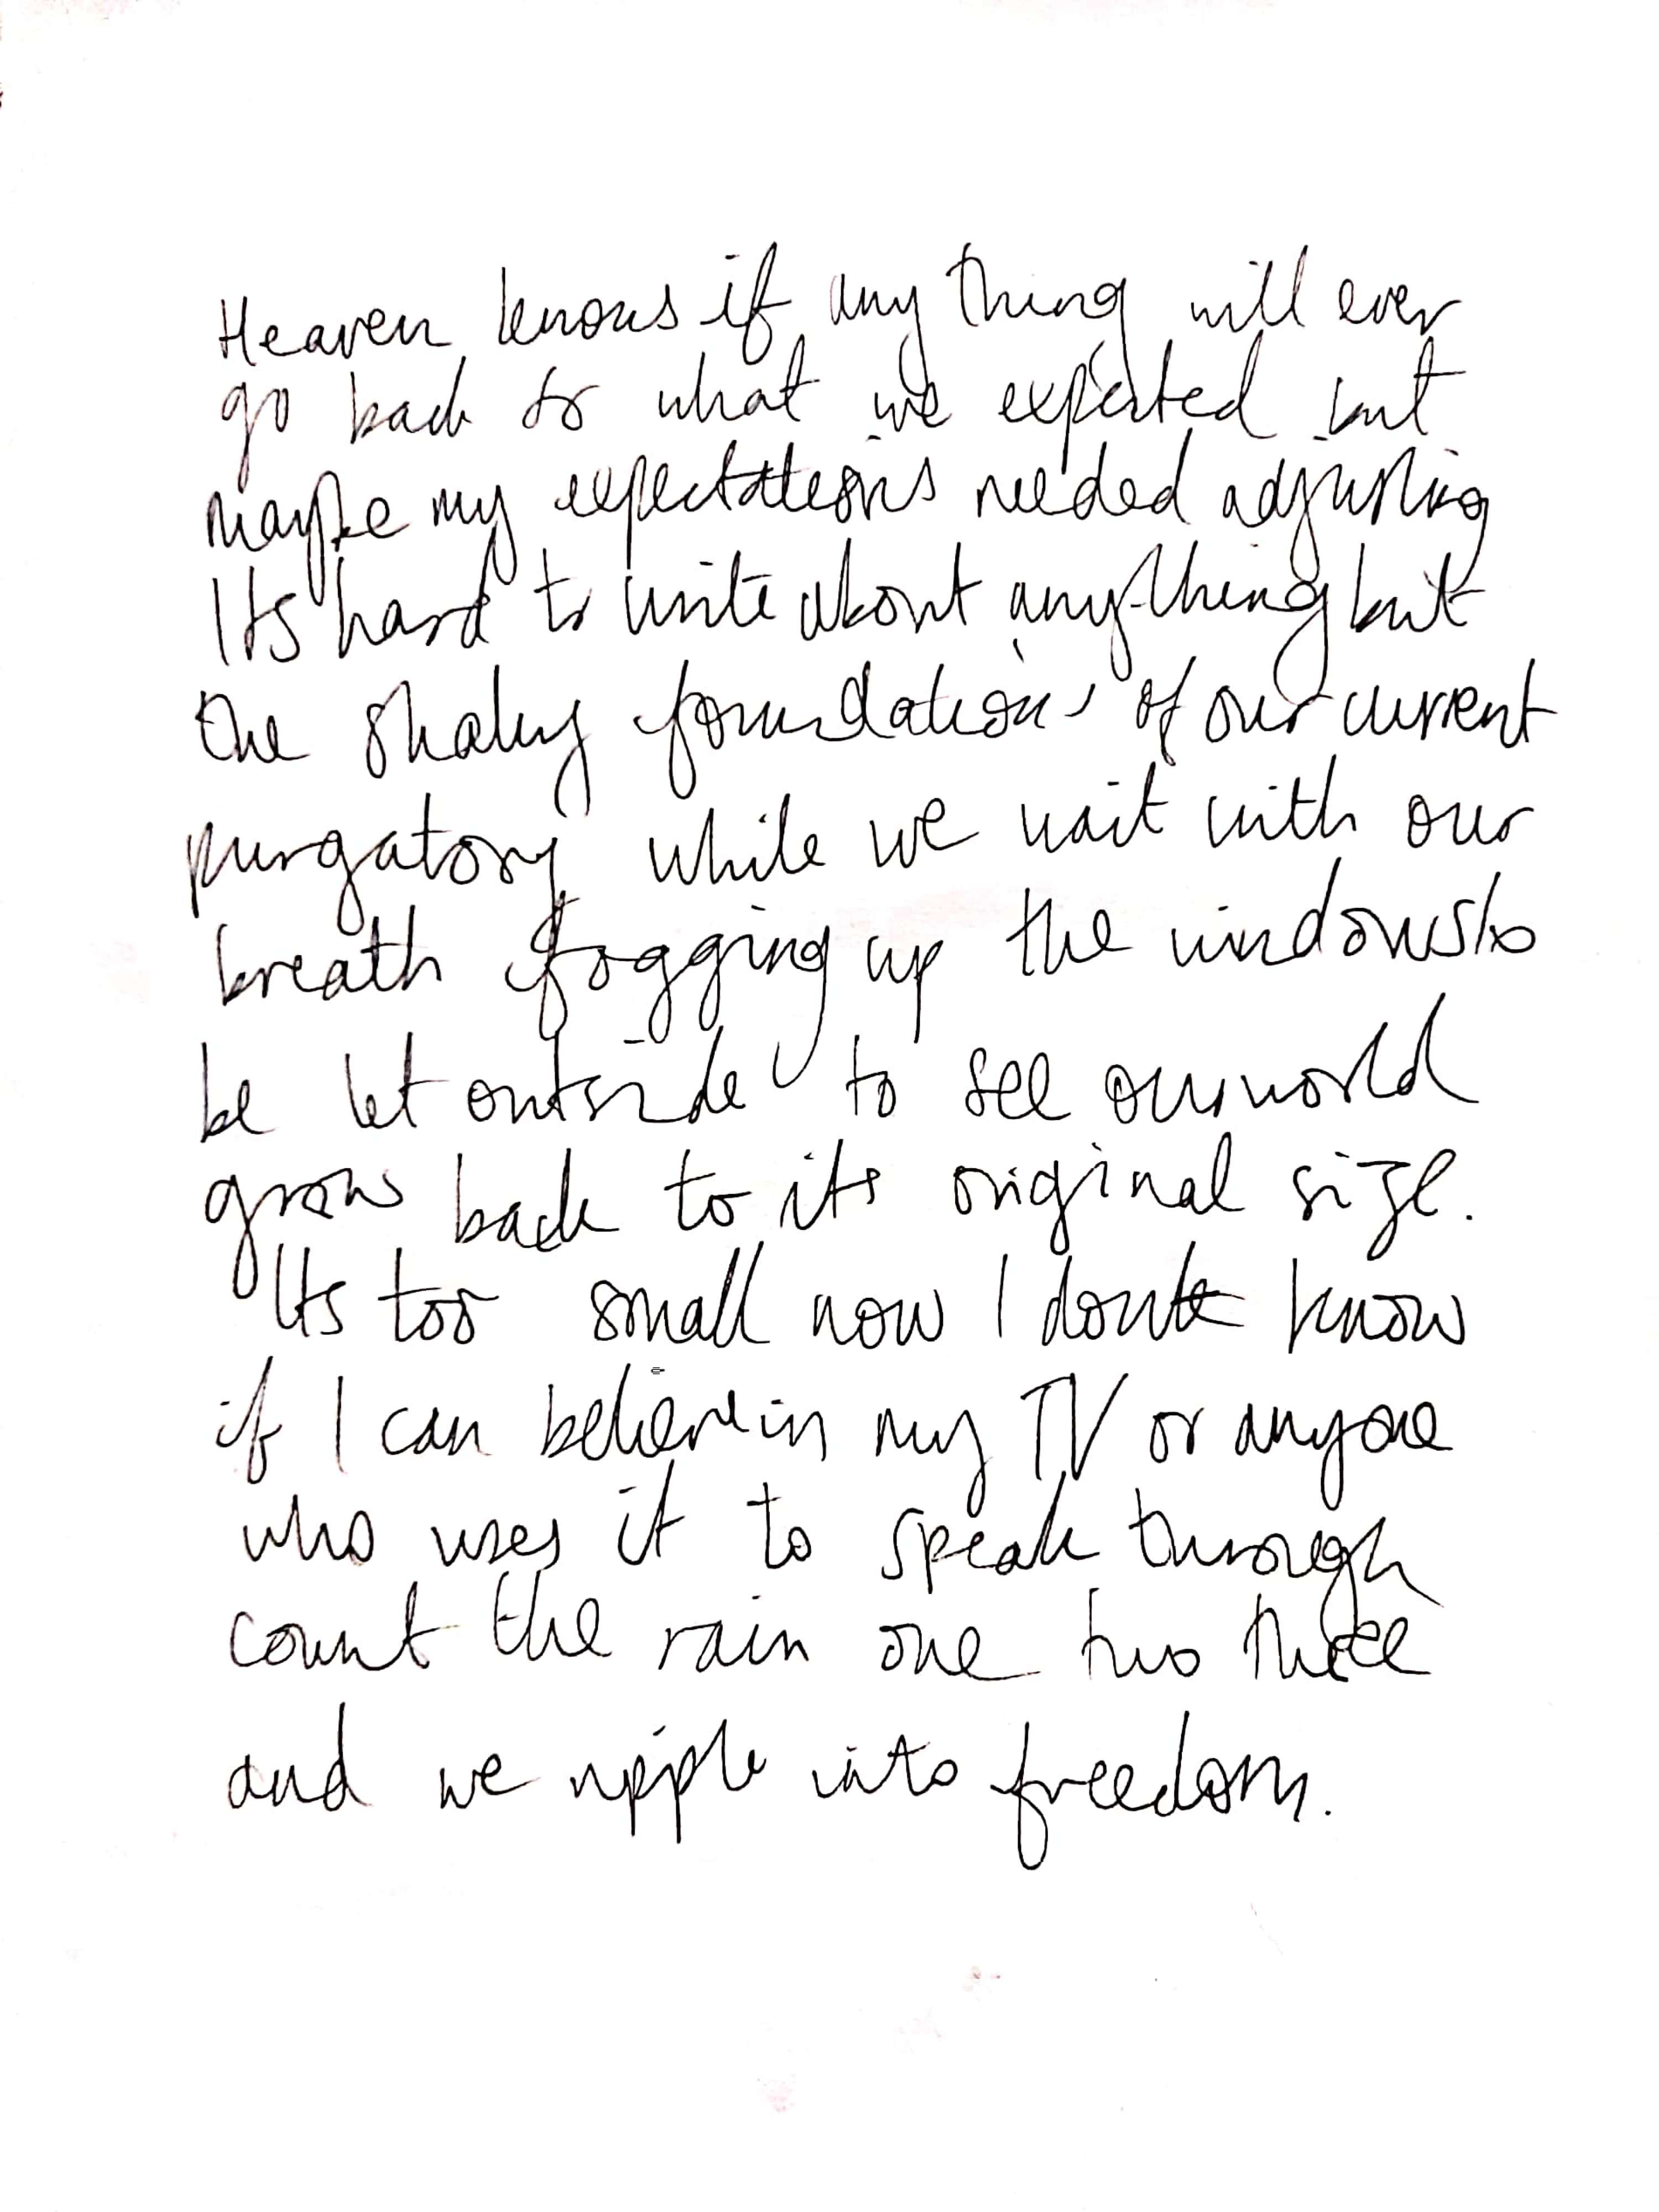 Heaven knows if any thing will ever
go back to what we expected but
maybe my expectations needed adjusting
Its hard to write about anything but
the shaky foundations of our current
purgatory while we wait with our
breath fogging up the windows to
be let outside to see our world
grow back to its original size.
Its too small now I dont know
if I can believe in my TV or anyone
who uses it to speak through
count the rain one two three
and we ripple into freedom.